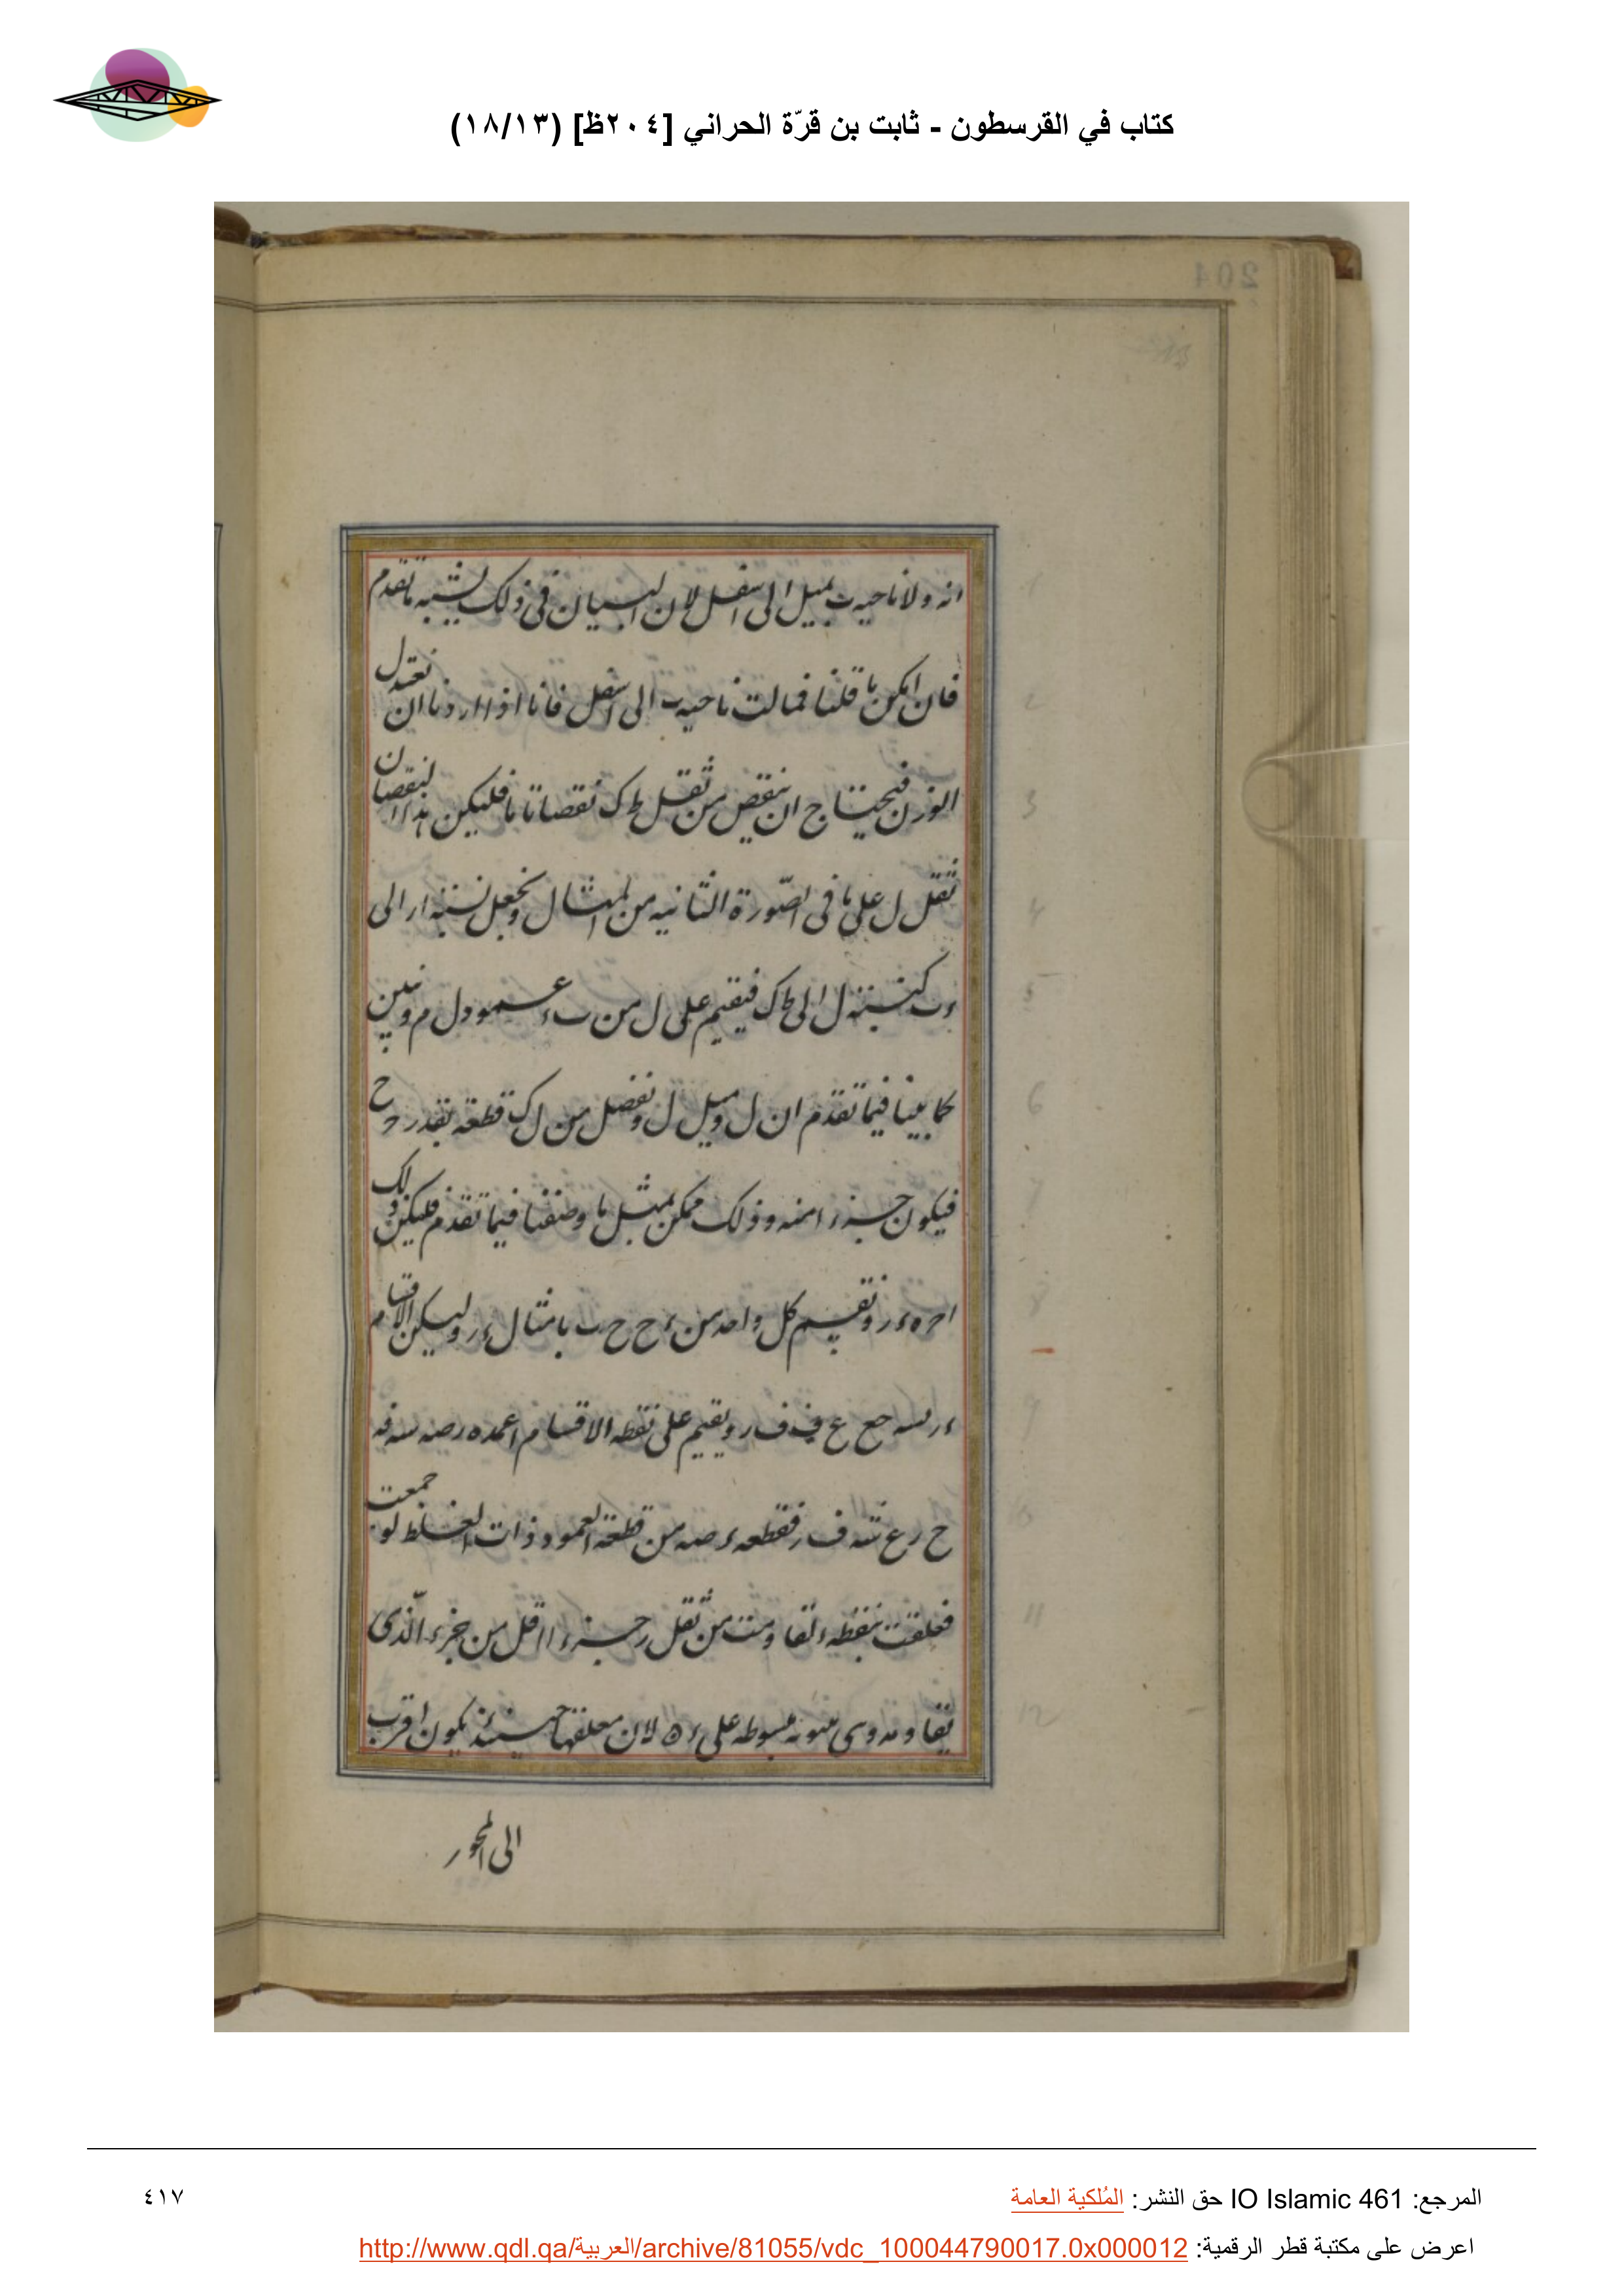 كتاب في القرسطون - ثابت بن قرّة الحراني [٢٠٤ظ] (١٨/١٣)
204
انه ولا ناحيه ب بميل الى اسفل لان البيان فى ذلك يشبه ما تقدم
فان امكن ما قلنا فمالت ناحيه ب الى اسفل فانا اذا اردنا ان نعتدل
الوزن فيحتاج ان ينقص من ثقل ط ك نقصانا ما فليكن هذا النقصان
ثقل ل على ما فى الصّورة الثانيه من المثال ونجعل نسبة ار الى
ءب كنسبة ل الى ط ك فيقيم على ل من ب ء عمود ل م و نبين
كما بينا فيما تقدم ان ل و ميل ل و نفصل من ل ك قطعه بقدر ح
فيكون جزء امنه وذلك ممكن بمثل ما وصفنا فيما تقدم فليكن ذلك
ونقسم كل واحد من ء ح ح ب بامثال ء ر وليكن الاقسام
ويقيم على نقطه الاقسام اعمده
فقطعه ء صه من قطعة العمود ذات الغلظ لو جمعت
فعلقت بنقطه ء لقاومت من ثقل ر جزءا اقل من جزء الّذى
تقاومه وهى مبسوطه على ء ه لان معلقها حينئذ يكون اقرب
الى المحور
المرجع: IO Islamic 461 حق النشر: المُلكية العامة
٤١٧
اعرض على مكتبة قطر الرقمية: http://www.qdl.qa/العربية/archive/81055/vdc_100044790017.0x000012